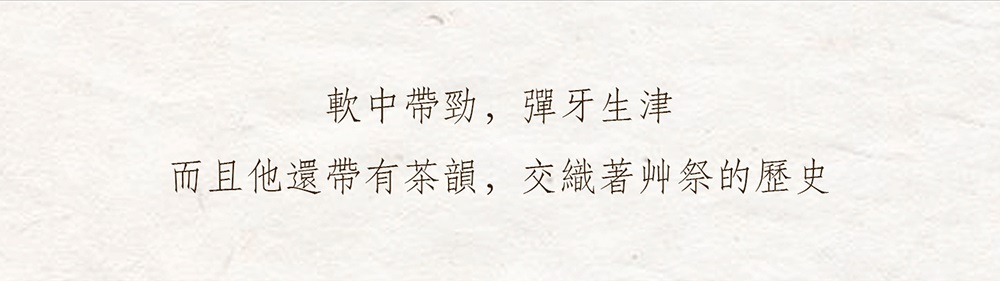 軟中帶勁，彈牙生津
而且他還帶有茶韻，交織著艸祭的歷史